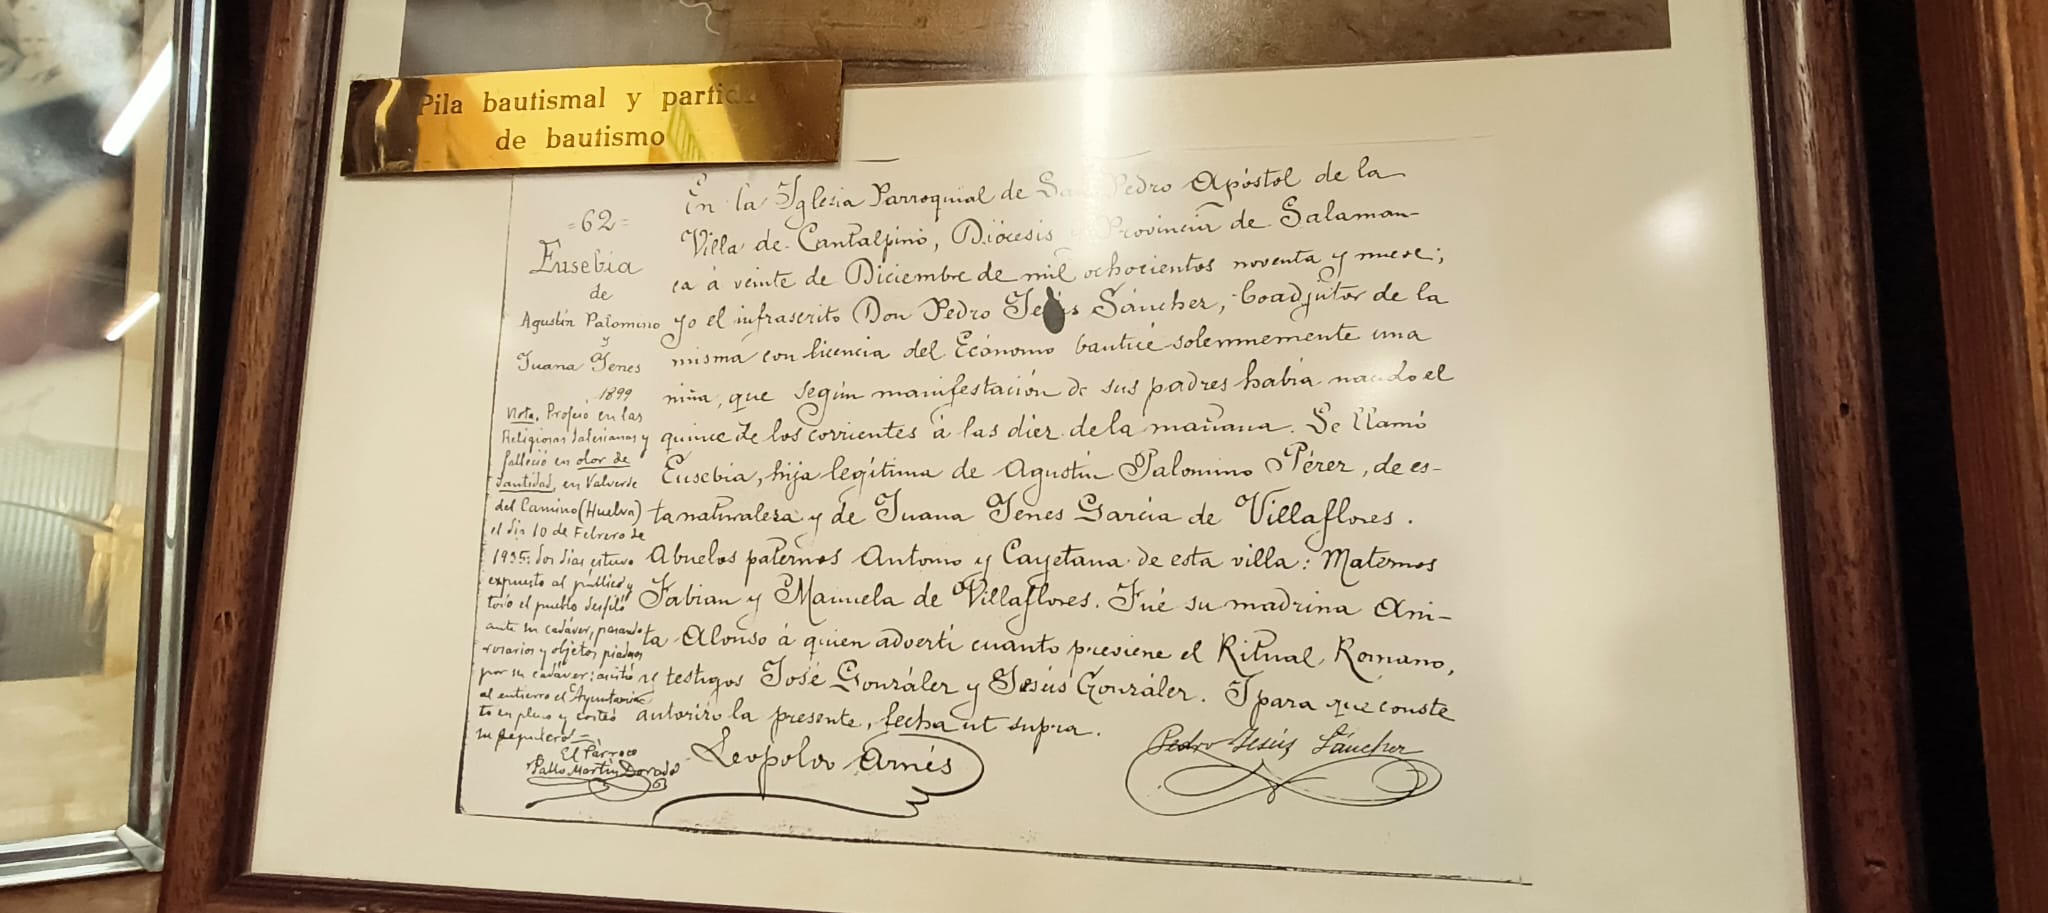 Pila bautismal y partida
de bautismo
=62=
Eusebia
de
Agustín Palomino
y
Juana Yenes
1899
Nota. Profesó en las
Religiosas Salesianas y
falleció en olor de
santidad, en Valverde
del Camino (Huelva)
el día 10 de Febrero de
1935: dos días estuvo
expuesto al público y
todo el pueblo desfiló
ante su cadáver, pasando
rosarios y objetos piadosos
por su cadáver: asistió
al entierro el Ayuntamien
to en pleno y costeó
su sepulcro =
El Párroco
Pablo Martín Dorado
En la Iglesia Parroquial de San Pedro Apóstol de la
Villa de Cantalpino, Diócesis y Provincia de Salaman-
ca á veinte de Diciembre de mil ochocientos noventa y nueve;
yo el infrascrito Don Pedro Jesús Sánchez, Coadjutor de la
misma con licencia del Ecónomo bauticé solemnemente una
niña, que según manifestación de sus padres había nacido el
quince de los corrientes á las diez de la mañana. Se llamó
Eusebia, hija legítima de Agustín Palomino Pérez, de es-
ta naturaleza y de Juana Yenes García de Villaflores.
Abuelos paternos Antonio y Cayetana de esta villa: Maternos
Fabian y Manuela de Villaflores. Fué su madrina Ani-
ta Alonso á quien advertí cuanto previene el Ritual Romano,
testigos José González y Jesús González. Y para que conste
autorizo la presente, fecha ut supra.
Leopoldo Arnés
Pedro Jesús Sánchez